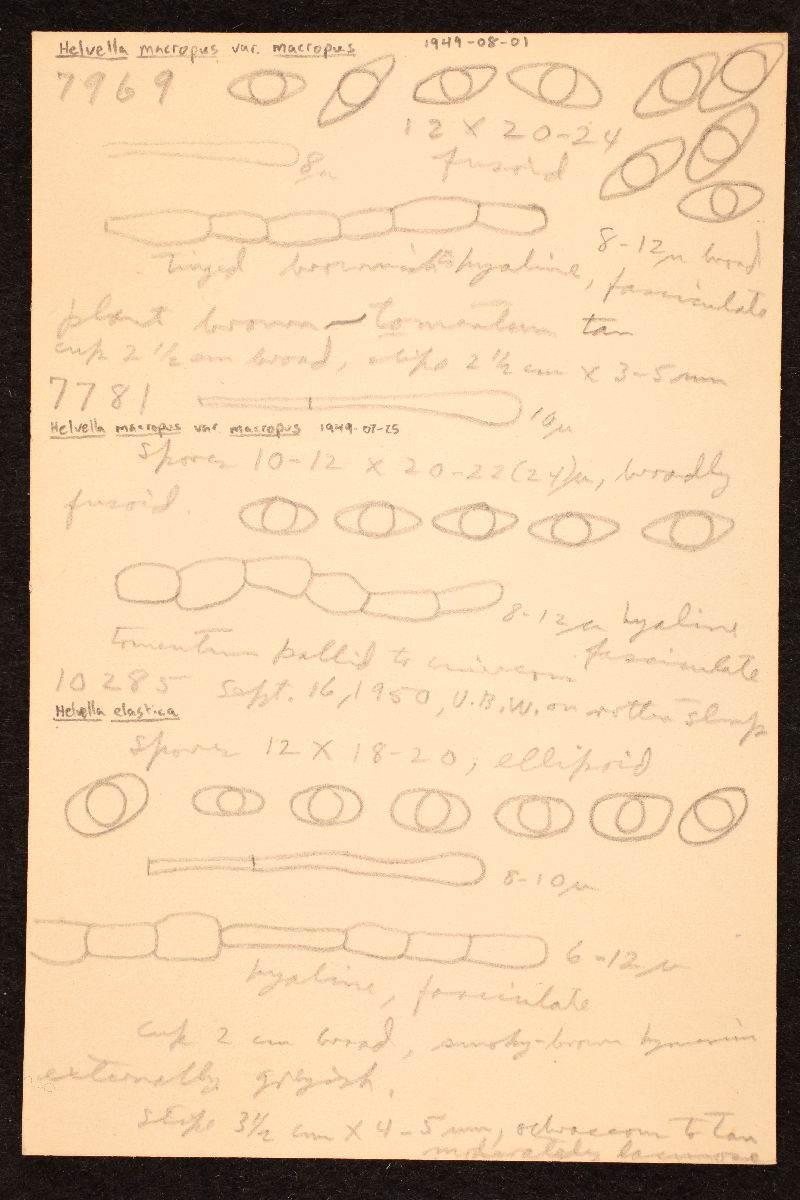 Helvella macropus var. macropus 1949-08-01
7969
12 X 20-24
8µ fusoid
8-12µ broad
Tinged brownish to hyaline, fasciculate
plant brown – tomentum tan
cup 2 1/2 cm broad, stipe 2 1/2 cm X 3-5 mm
7781
10µ
Helvella macropus var. macropus 1949-07-25
Spores 10-12 X 20-22(24)µ, broadly
fusoid.
8-12µ hyaline
fasciculate
tomentum pallid to
10285 Sept. 16, 1950, U.B.W. on rotten stump
Helvella elastica
Spores 12 X 18-20, ellipsoid
8-10µ
6-12µ
hyaline, fasciculate
cup 2 cm broad, smoky-brown
externally greyish.
stipe 3 1/2 cm X 4-5 mm, to tan
moderately lacunose